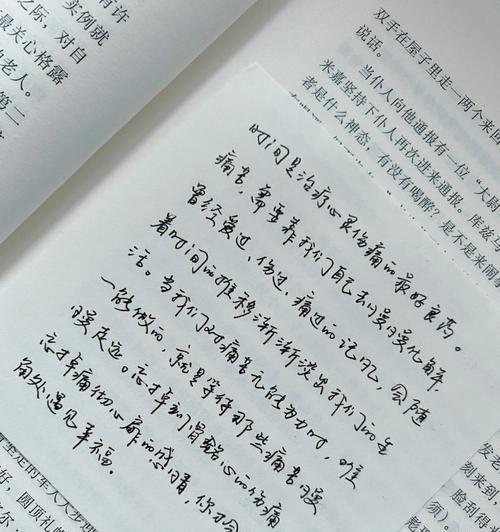 有许
实例犹
之际，对自
最关心格露
老人。
第二
双手在屋子里走一两个来回
说话。
当仆人向他通报有一位“大尉
米嘉坚持下仆人再次进来通报。库兹
者是什么神态，有没有喝醉？是不是来闹
时间是治疗心灵伤痛的最好良药。
痛苦，需要靠我们自己去慢慢化解，
曾经爱过、伤过、痛过的记忆，会随
着时间的推移渐渐淡出我们的生
活。当我们对痛苦无能为力时，唯
一能做的，就是等待那些痛苦慢
慢走远。忘掉刻骨铭心的伤痛
忘掉痛彻心扉的感情，你才会
角处遇见幸福。
圆顶礼
发
刻来到
脸刮得
须）